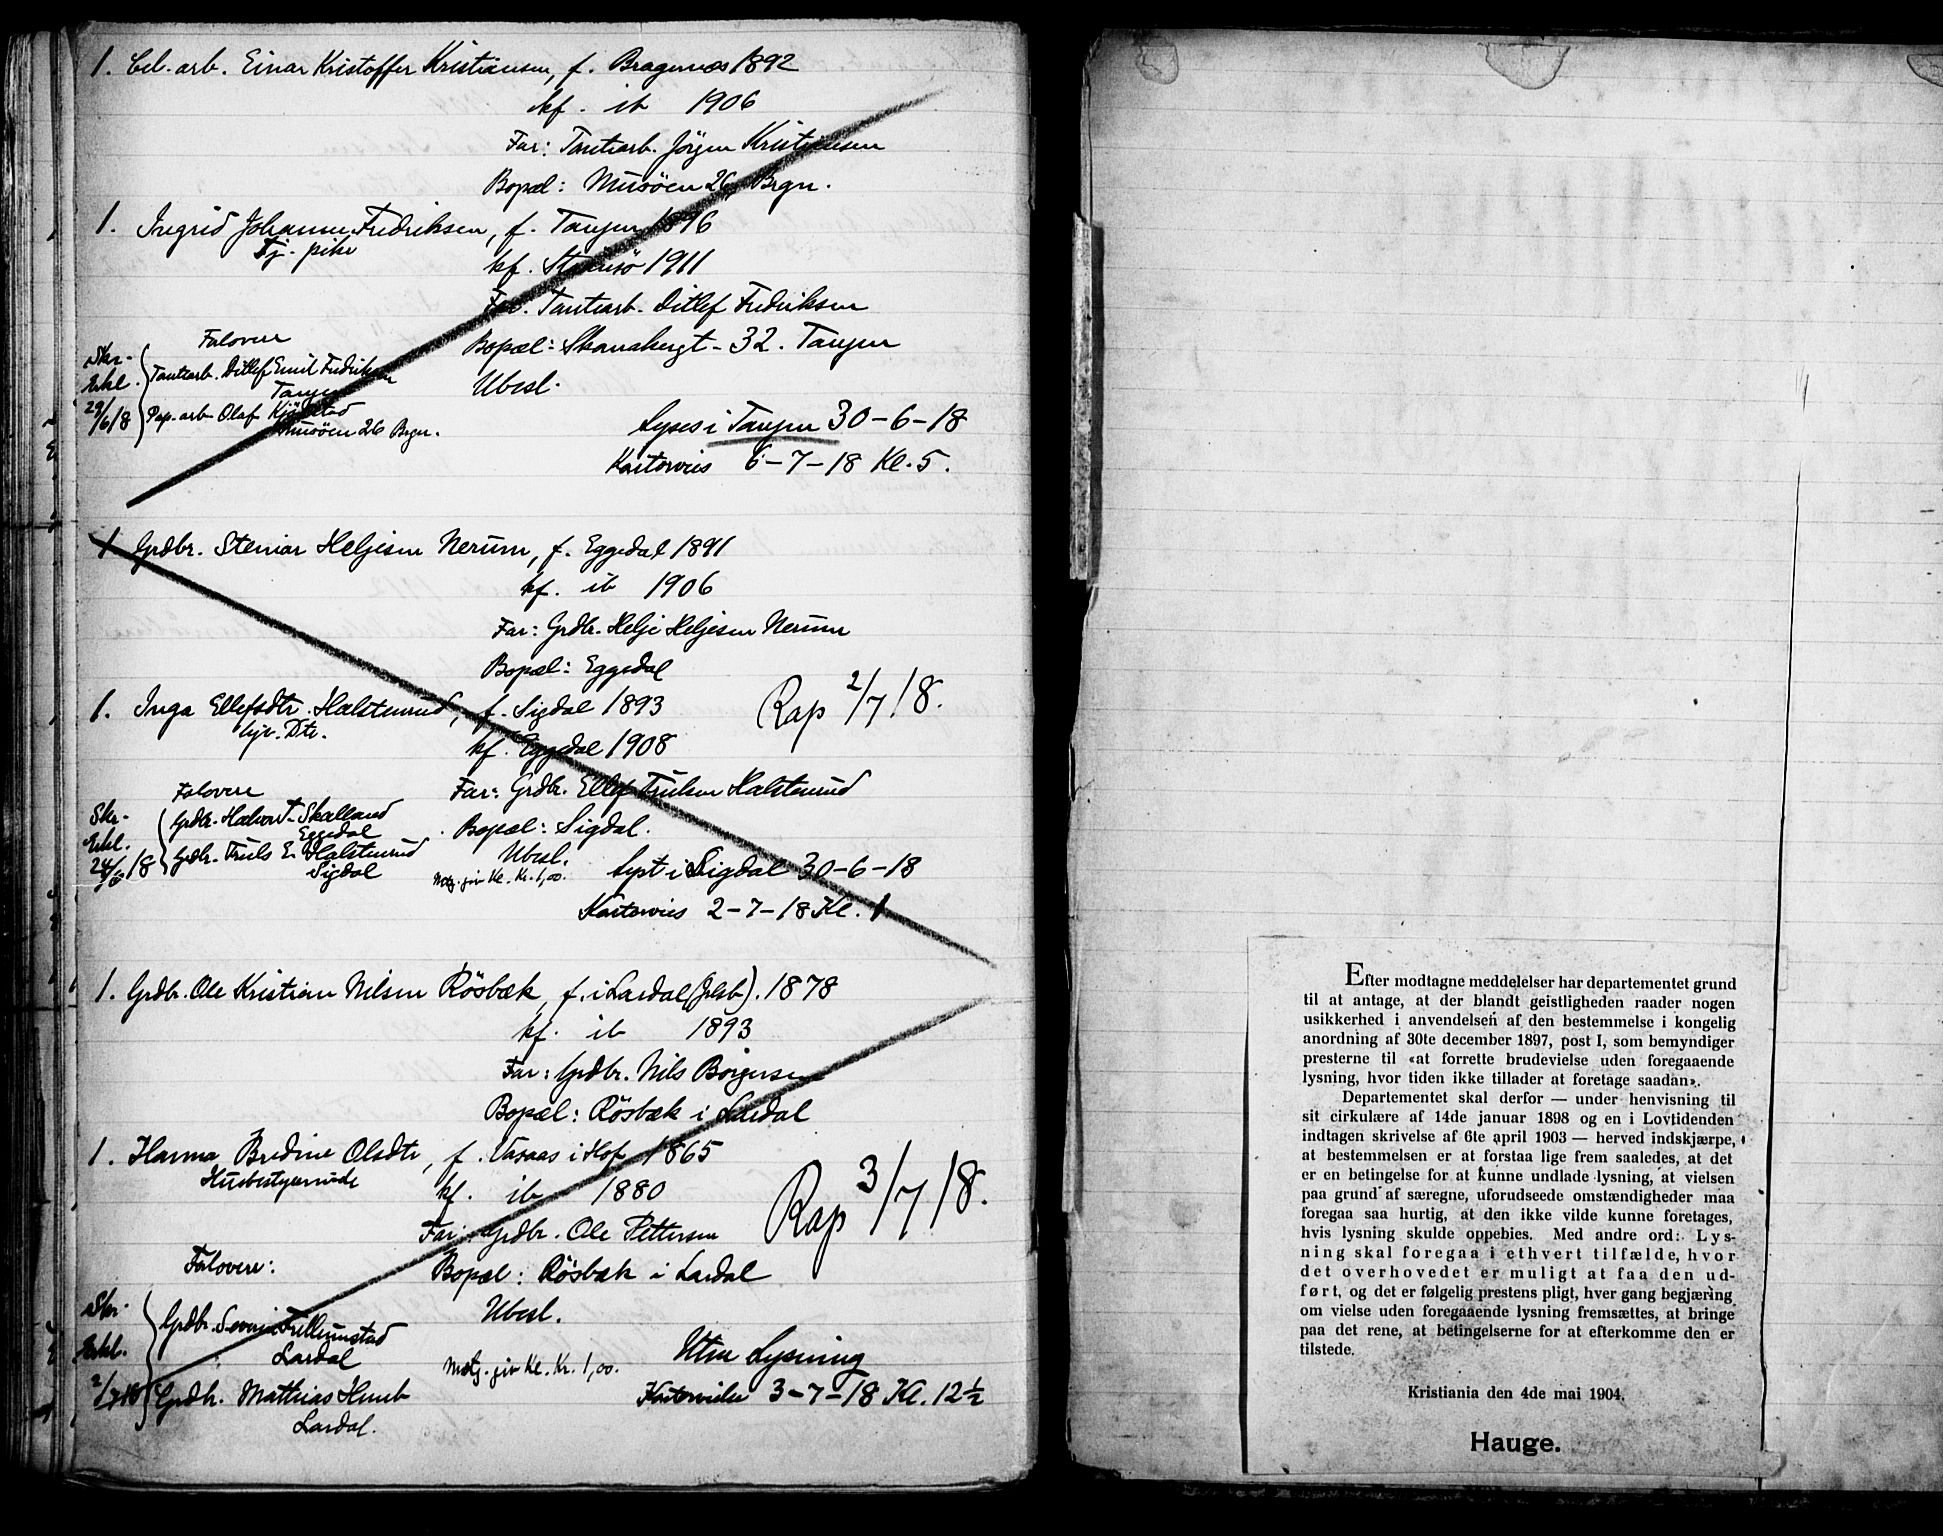 1. Cel. arb. Einar Kristoffer Kristiansen, f. Bragernæs 1892
kf. ib 1906
Far: Tomtearb. Jörgen Kristiansen
Bopæl: Musöen 26, Brgn.
1. Ingrid Johanne Fredriksen, f. Tangen 1896
Tj. pike
kf. Strömsö 1911
Far. Tomtearb. Ditlef Fredriksen
Bopæl: Skansbergt. 32. Tangen
Forlovere
Skr.
Erkl.
29/6 18
Tomtearb. Ditlef Emil Fredriksen
Tangen
Pap. arb. Olaf
Musöen 26 Brgn.
Ubesl.
Lyses i Tangen 30-6-18
Kontorvies 6-7-18 Kl. 5.
1. Grdbr. Steinar Heljesen Nerum, f. Eggedal 1891
kf. ib 1906
Far: Grdbr. Helje Heljesen Nerum
Bopæl: Eggedal
1. Inga Ellefsdtr. Halstenrud, f. Sigdal 1893
Hjv. Dtr.
Rap 2/7 18.
kf. Eggedal 1908
Far: Grdbr. Ellef Trulsen Halstenrud
Bopæl: Sigdal.
Forlovere
Skr.
Erkl.
18
Grdbr. Halvor T. Skalland
Eggedal
Grdbr. Truls E. Halstenrud
Sigdal
Ubesl.
Kl. Kr. 1,00.
Lyst i Sigdal 30-6-18
Kontorvies 2-7-18 Kl. 1
1. Grdbr. Ole Kristian Nilsen Rösbæk, f. i Lardal (Jrlsb). 1878
kf. ib 1893
Far: Grdbr. Nils Börgersen
Bopæl: Rösbæk i Lardal
1. Hanna Bredine Olsdtr, f. Vasaas i Hof 1865
Husbestyrerinde
kf. ib 1880
Rap 3/7 18.
Far: Grdbr. Ole Pettersen
Bopæl: Rösbæk i Lardal
Forlovere:
Skr.
Erkl.
2/7 18
Grdbr. Severin
Lardal
Grdbr. Mathias
Lardal.
Ubesl.
Kl. Kr. 1,00.
Uten Lysning
Kontorvielse 3-7-18 Kl. 12 ½
Efter modtagne meddelelser har departementet grund
til at antage, at der blandt geistligheden raader nogen
usikkerhed i anvendelsen af den bestemmelse i kongelig
anordning af 30te december 1897, post I, som bemyndiger
presterne til «at forrette brudevielse uden foregaaende
lysning, hvor tiden ikke tillader at foretage saadan».
Departementet skal derfor — under henvisning til
sit cirkulære af 14de januar 1898 og en i Lovtidenden
indtagen skrivelse af 6te april 1903 — herved indskjærpe,
at bestemmelsen er at forstaa lige frem saaledes, at det
er en betingelse for at kunne undlade lysning, at vielsen
paa grund af særegne, uforudseede omstændigheder maa
foregaa saa hurtig, at den ikke vilde kunne foretages,
hvis lysning skulde oppebies. Med andre ord: Lys-
ning skal foregaa i ethvert tilfælde, hvor
det overhovedet er muligt at faa den ud-
ført, og det er følgelig prestens pligt, hver gang begjæring
om vielse uden foregaaende lysning fremsættes, at bringe
paa det rene, at betingelserne for at efterkomme den er
tilstede.
Kristiania den 4de mai 1904.
Hauge.